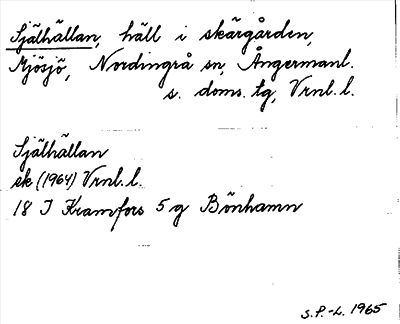 Själhällan, häll i skärgården,
Mjösjö, Nordingrå sn, Ångermanl.
s. doms. tg, Vrnl. l.
Själhällan
ek (1964) Vrnl. l.
18 I Kramfors 5 g Bönhamn
S.P.-L. 1965